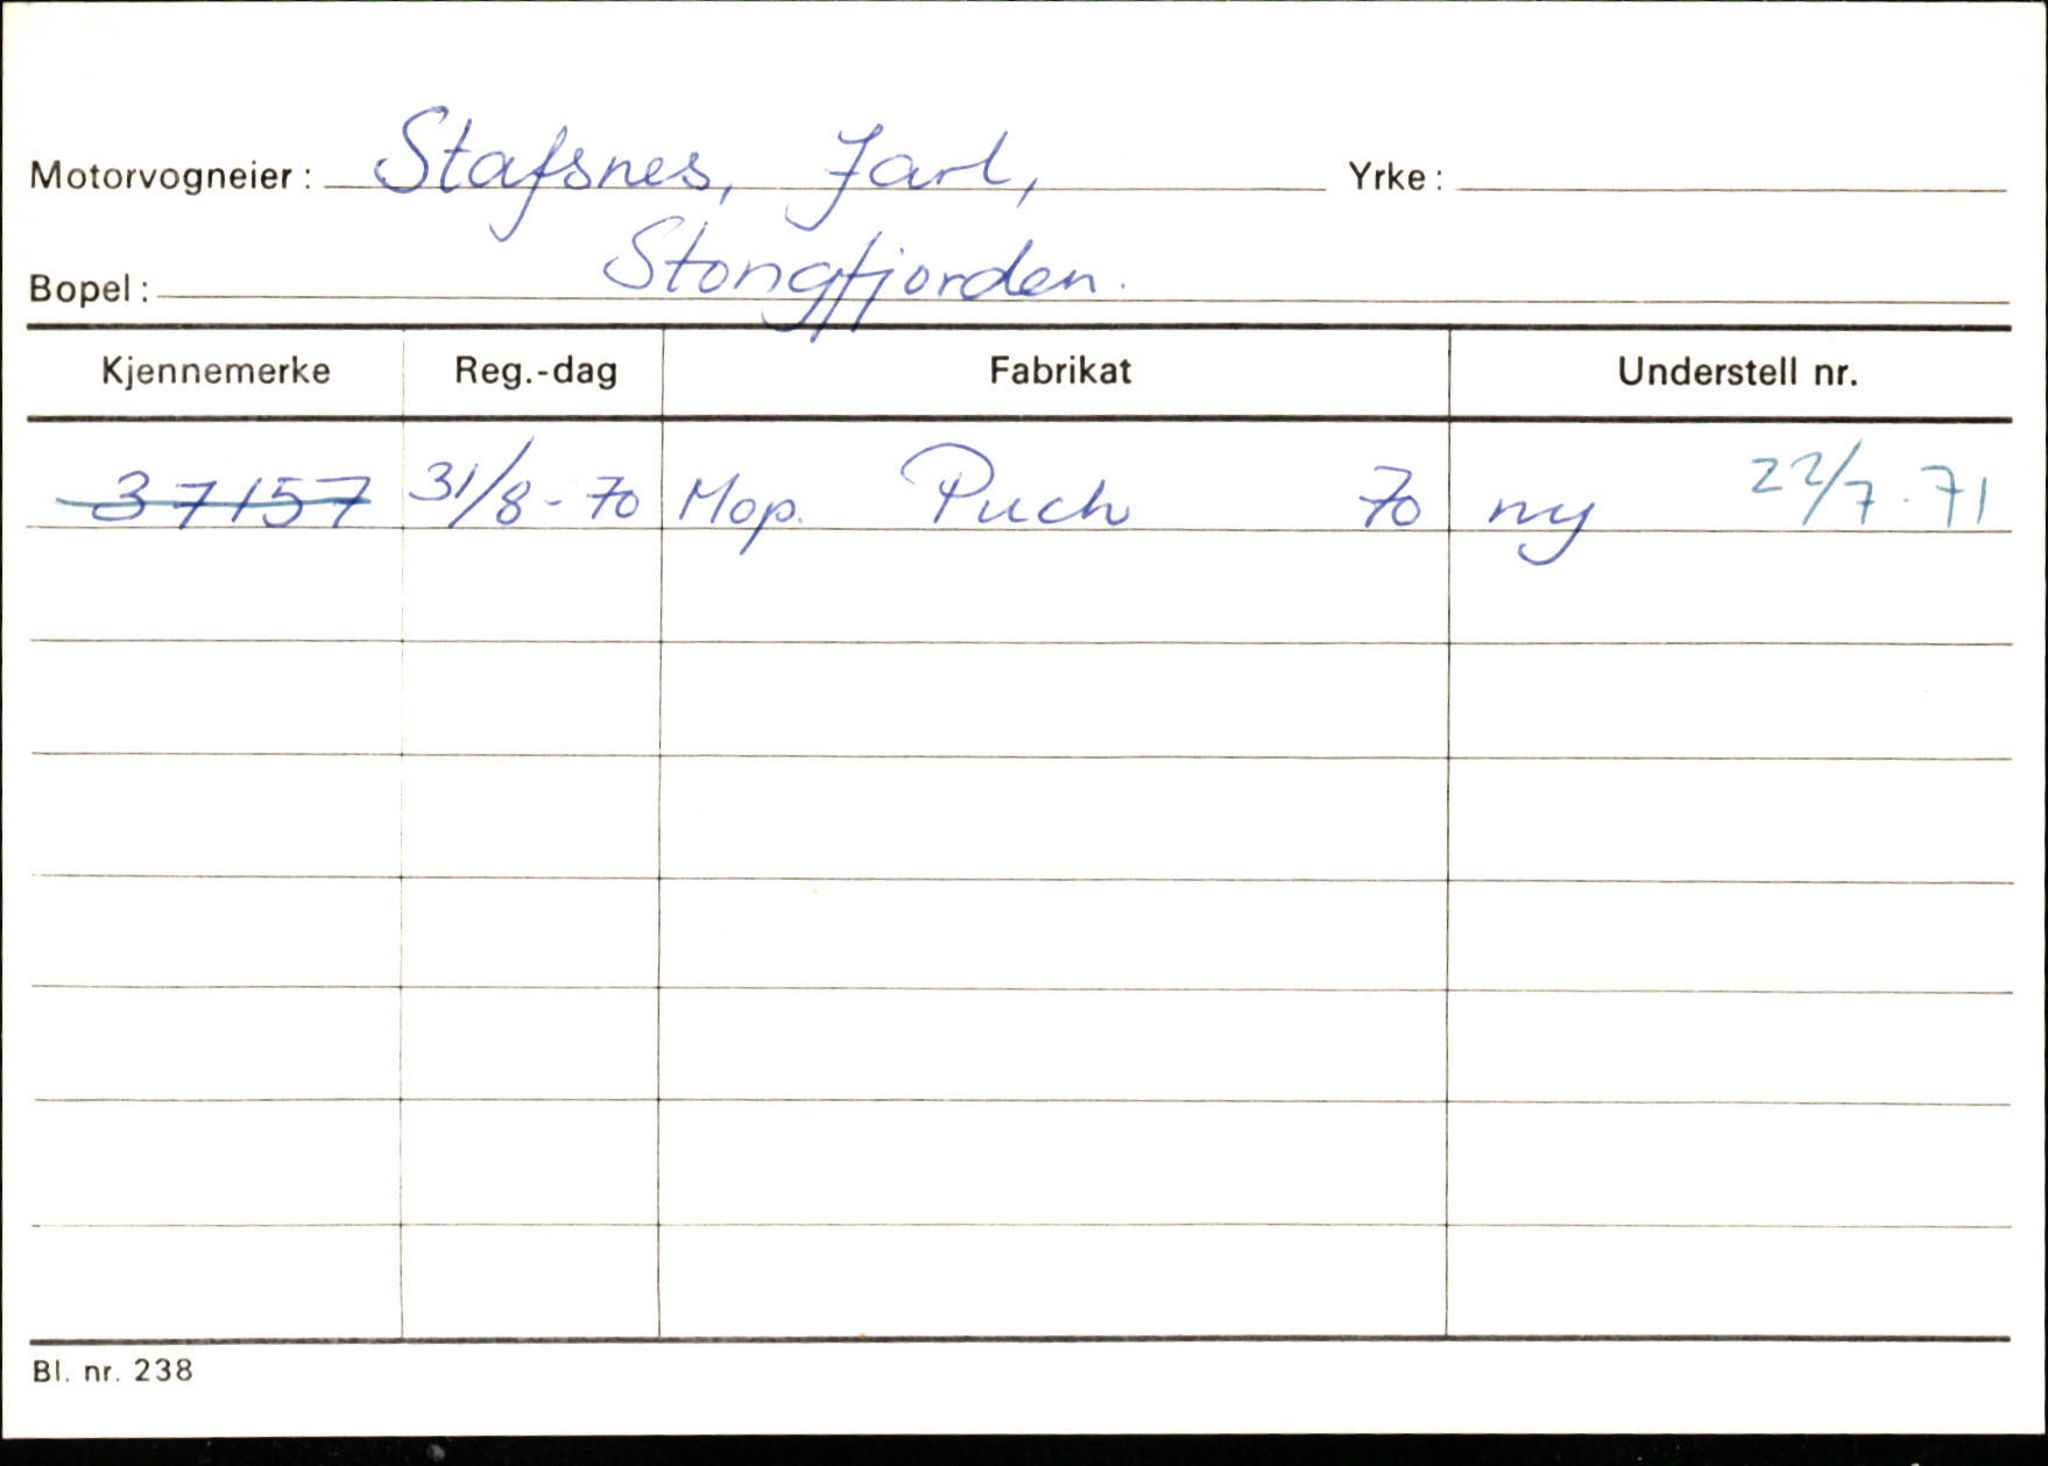 Motorvogneier: Stafsnes, Jarl, Yrke:
Bopel: Stongfjorden.
Kjennemerke Reg.-dag Fabrikat Understell nr.
37157 31/8-70 Mop. Puch 70 ny 22/7-71
Bl. nr. 238